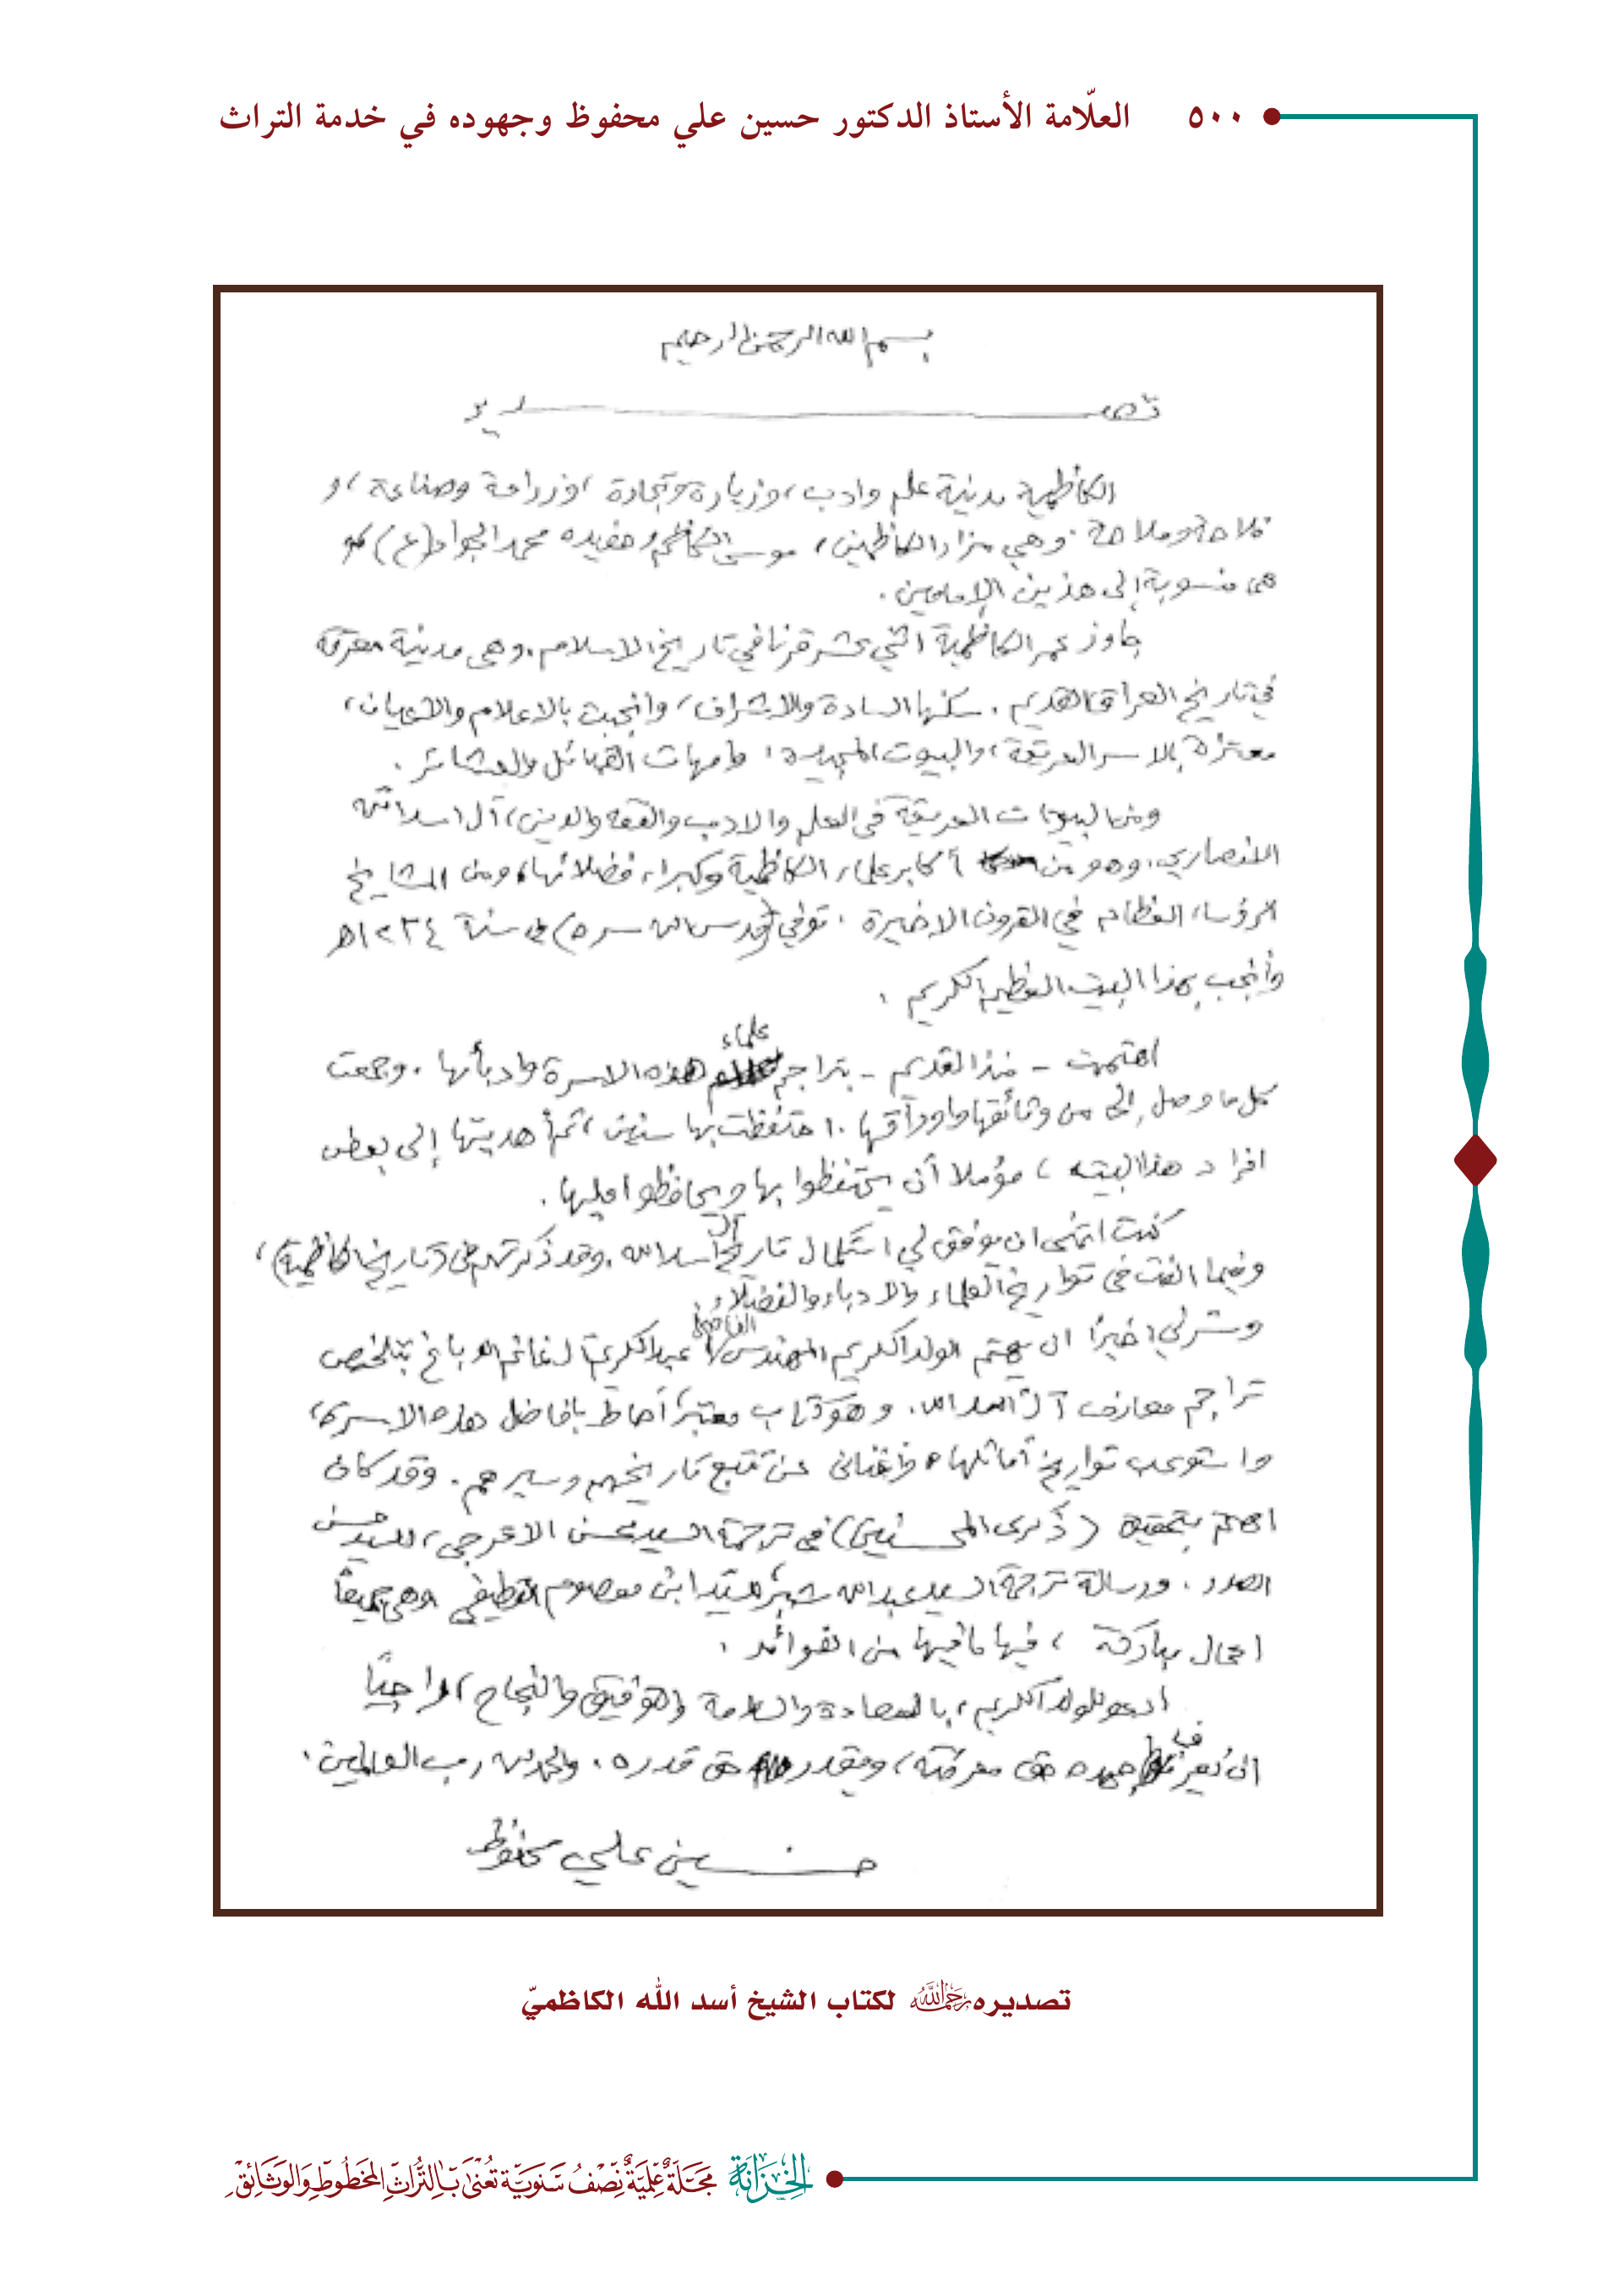 ٥٠٠ العلّامة الأستاذ الدكتور حسين علي محفوظ وجهوده في خدمة التراث
بسم الله الرحمن الرحيم
تصدير
الكاظمية مدينة علم وادب، وزيارة وتجارة، وزراعة وصناعة، و
فلاحة وملاحة. وهي مزار الكاظمين، موسى الكاظم وحفيده محمد الجواد (ع)
هي منسوبة إلى هذين الإمامين.
جاوز عمر الكاظمية اثني عشر قرنا في تاريخ الاسلام. وهي مدينة معرقة
في تاريخ العراق القديم. سكنها السادة والاشراف، وانجبت بالاعلام والاعيان،
معتزة بالاسر العريقة، والبيوت المجيدة، وامهات القبائل والعشائر.
ومن البيوتات العريقة في العلم والادب والفقه والدين، آل اسد الله
الانصاري. وهو من أكابر علماء الكاظمية وكبراء فضلائها، ومن المشايخ
الرؤساء العظام في القرون الاخيرة. توفي (قدس الله سره) في سنة ١٢٣٤هـ
وأنجب هذا البيت العظيم الكريم.
اهتممت - منذ القديم - بتراجم علماء هذه الاسرة وادبأئها. وجمعت
كل ما وصل إليّ من وثائقها واوراقها. احتفظت بها سنين، ثم أهديتها إلى بعض
افراد هذا البيت، مؤملا أن يحتفظوا بها ويحافظوا عليها.
كنت اتمنى ان يوفق لي استكمال تاريخ آل اسد الله. وقد ذكرتهم في (تاريخ الكاظمية)،
وفيما الفت في تواريخ العلماء والادباء والفضلاء.
وسرني اخيرًا ان يهتم الولد الكريم المهندس الفاضل عبد الكريم الدباغ بتلخيص
تراجم معارف آل اسد الله. وهو كتاب معتبر، أحاط بافاضل هذه الاسرة،
واستوعب تواريخ أماثلها، واغناني عن تتبع تاريخهم وسيرهم. وقد كان
اهتم بتحقيق (ذكرى المحسنين) في ترجمة السيد محسن الاعرجي، للسيد حسن
الصدر. ورسالة ترجمة السيد عبد الله شبر، للسيد ابن معصوم القطيفي. وهي جميعًا
اعمال مباركة، فيها ما فيها من الفوائد.
ادعو للولد الكريم، بالسعادة والسلامة والتوفيق والنجاح، راجيًا
ان يُعرف جهده حق معرفته، ويقدر حق قدره. والحمد لله رب العالمين.
حسين علي محفوظ
تصديره رحمه الله لكتاب الشيخ أسد الله الكاظميّ
الخزانة مجلة علمية نصف سنوية تعنى بالتراث المخطوط والوثائق